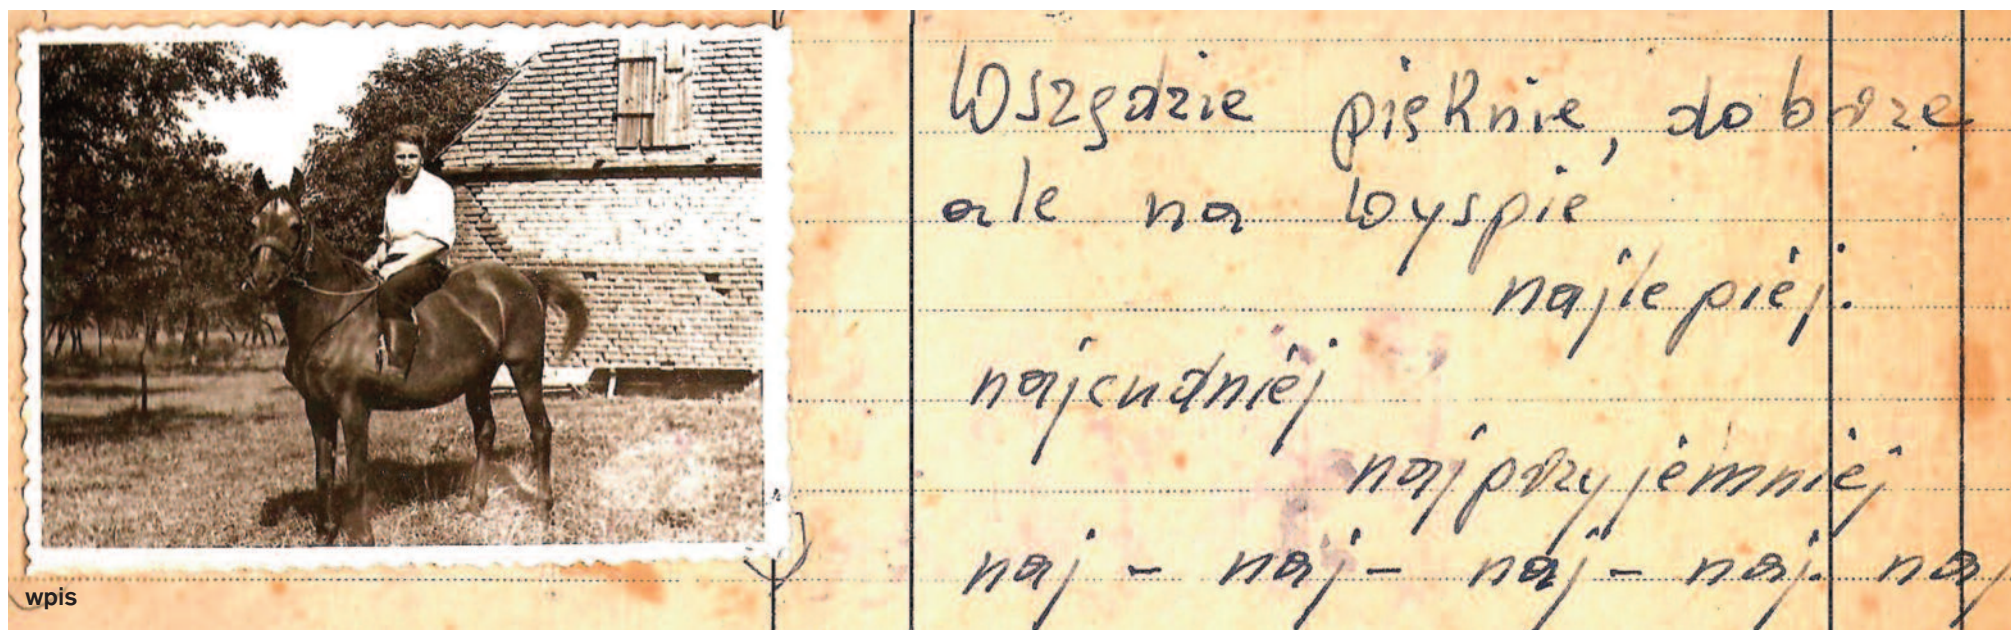 Wszędzie pięknie, dobrze
ale na wyspie
najlepiej.
najcudniej
najprzyjemniej
naj - naj - naj - naj. naj
wpis